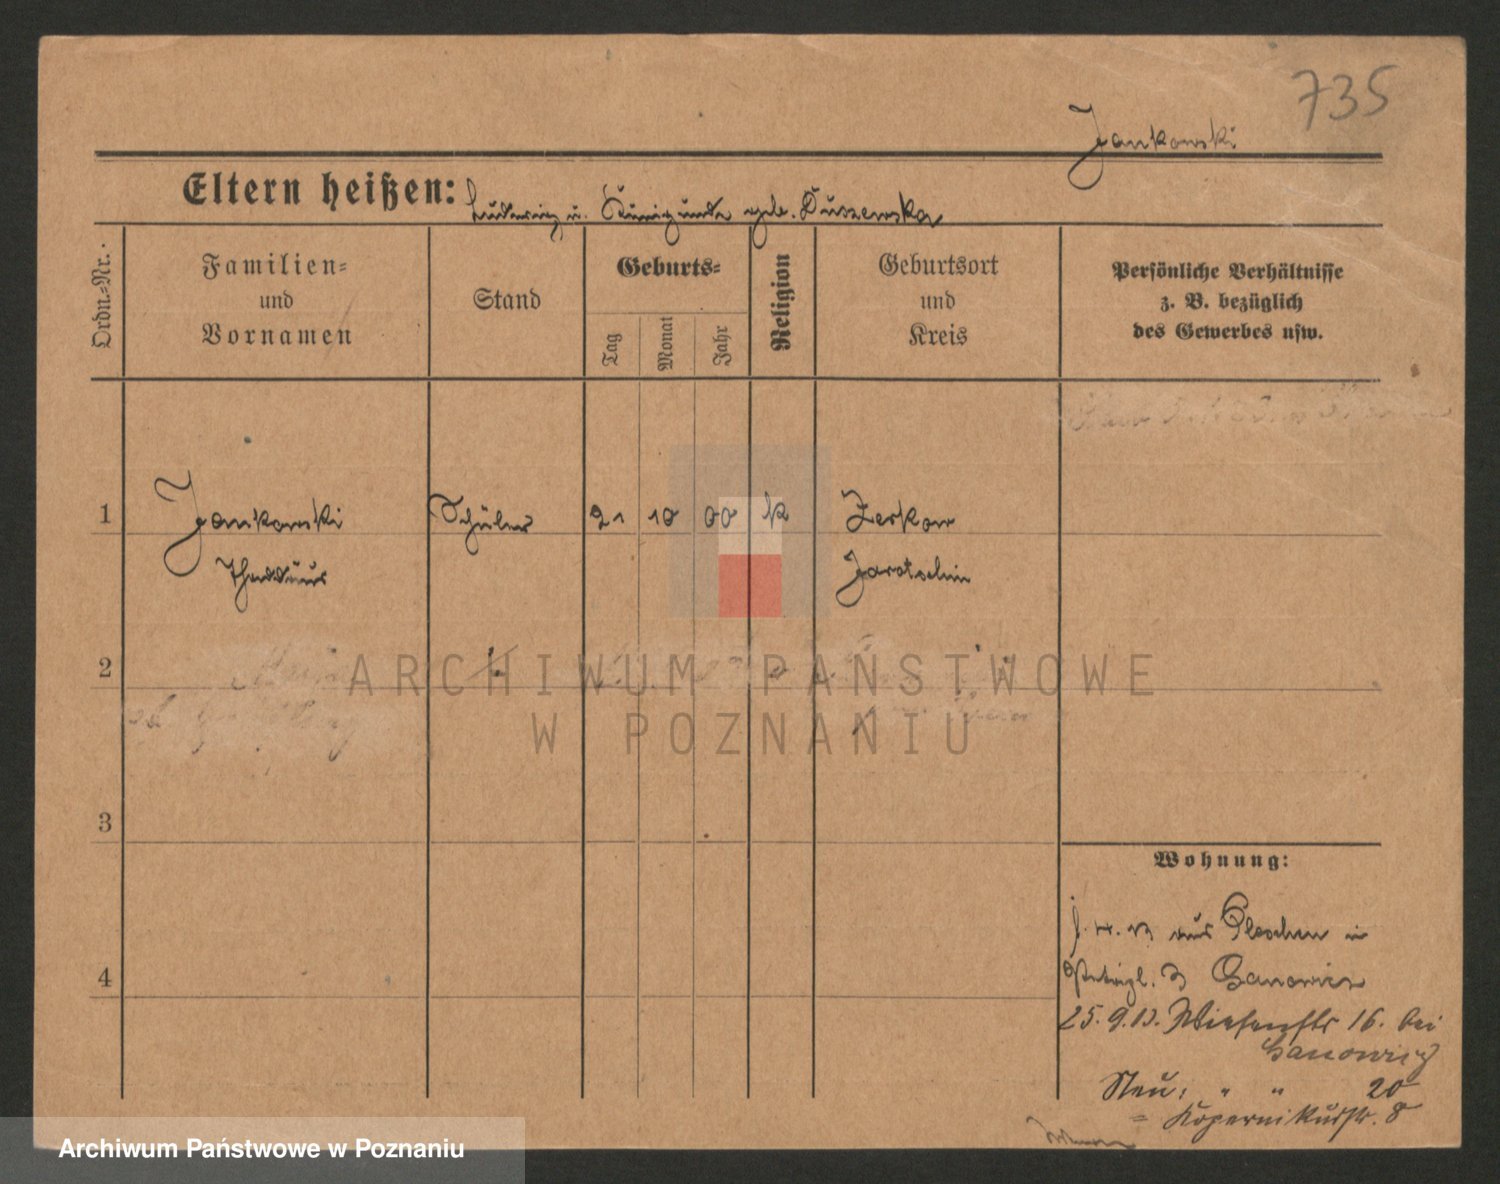 735
Jankowski
Eltern heißen: Ludwig u. Kunigunde geb. Duszewska
Ordn.-Nr.
Familien-
und
Vornamen
Stand
Geburts-
Tag
Monat
Jahr
Religion
Geburtsort
und
Kreis
Persönliche Verhältnisse
z. B. bezüglich
des Gewerbes usw.
1
Jankowski Schüler 21 10 00 k Zerkow
Thaddäus Jarotschin
2
ARCHIWUM PAŃSTWOWE
W POZNANIU
3
4
Wohnung:
aus Pleschen in
3 Ganowicz
25. 9. 13. Wiesenstr 16. bei
Ganowicz
Neu: " " 20
= Kopernikusstr. 8
Archiwum Państwowe w Poznaniu